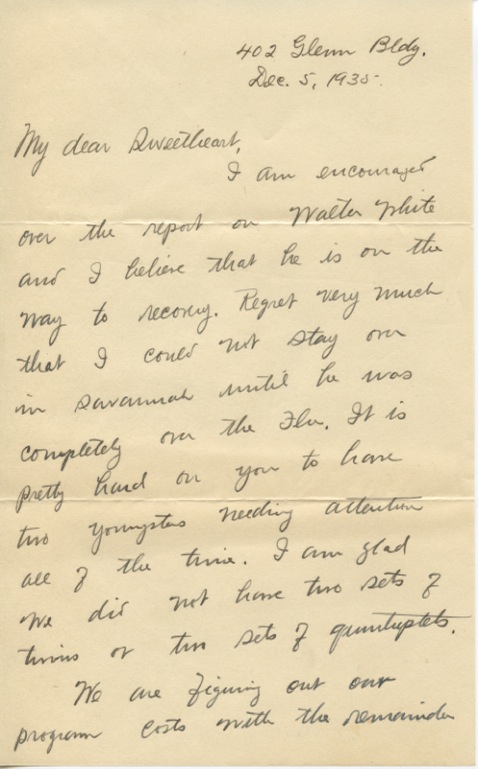 402 Glenn Bldg.
Dec. 5, 1935.
My dear Sweetheart,
I am encouraged
over the report on Walter White
and I believe that he is on the
way to recovery. Regret very much
that I could not stay over
in Savannah until he was
completely over the Flu. It is
pretty hard on you to have
two youngsters needing attention
all of the time. I am glad
we did not have two sets of
twins or two sets of quintuplets.
We are figuring out our
program costs with the remainder